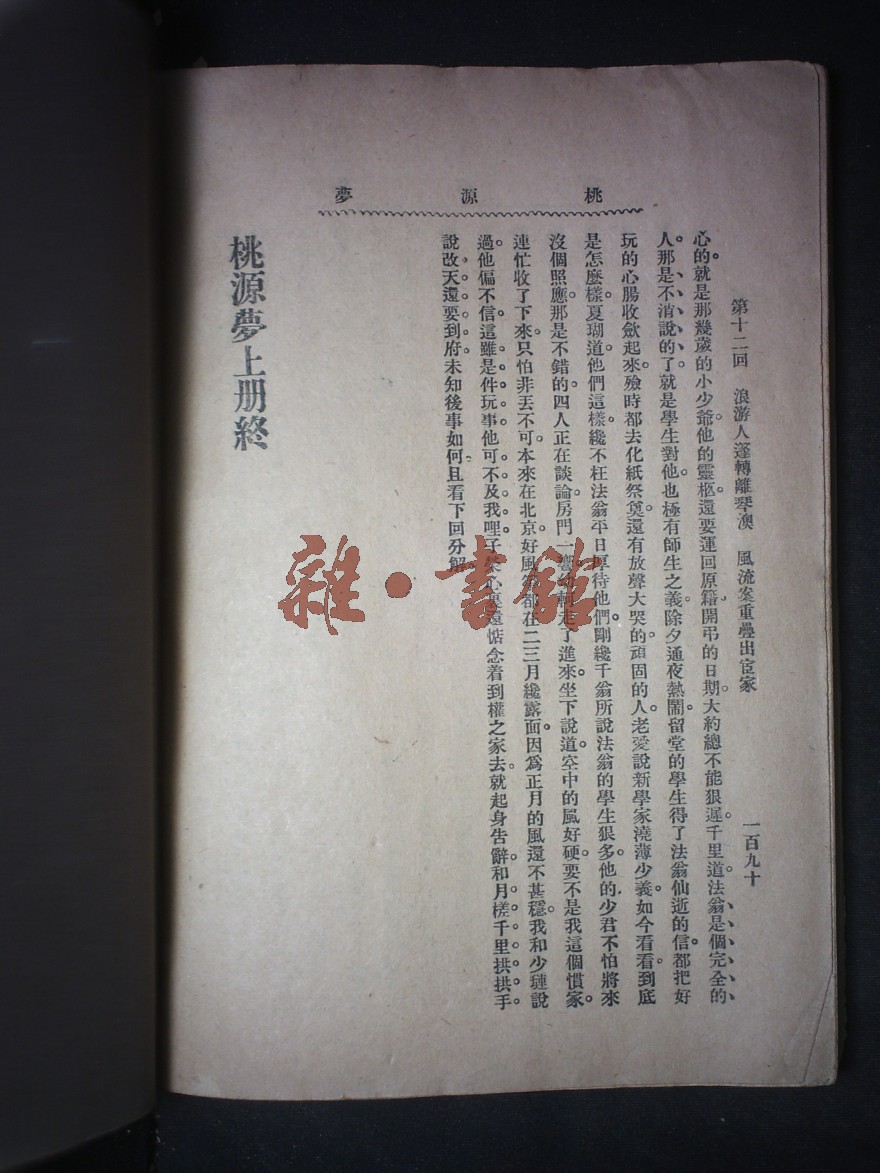 桃源夢
第十二回　浪游人蓬轉離琴澳　風流案重疊出宦家　一百九十
心的。就是那幾歲的小少爺。他的靈柩。還要運回原籍。開弔的日期。大約總不能狠遲。千里道。法翁是個完全的
人。那是不消說的了。就是學生對他。也極有師生之義。除夕通夜熱鬧。留堂的學生得了法翁仙逝的信。都把好
玩的心腸收斂起來。殮時都去化紙祭奠。還有放聲大哭的。頑固的人。老愛說新學家澆薄少義。如今看看。到底
是怎麼樣。夏瑚道。他們這樣。纔不枉法翁平日厚待他們。剛纔千翁所說法翁的學生狠多。他的少君不怕將來
沒個照應。那是不錯的。四人正在談論。房門一響走了進來。坐下說道。空中的風好硬。要不是我這個慣家。
連忙收了下來。只怕非丟不可。本來在北京。好風箏都在二三月纔露面。因爲正月的風還不甚穩。我和少璉說
過。他偏不信。這雖是件玩事。他可不及我哩。子心裏還惦念着到權之家去。就起身告辭。和月槎千里拱拱手。
說改天還要到府。未知後事如何。且看下回分解。
桃源夢上册終
雜·書館